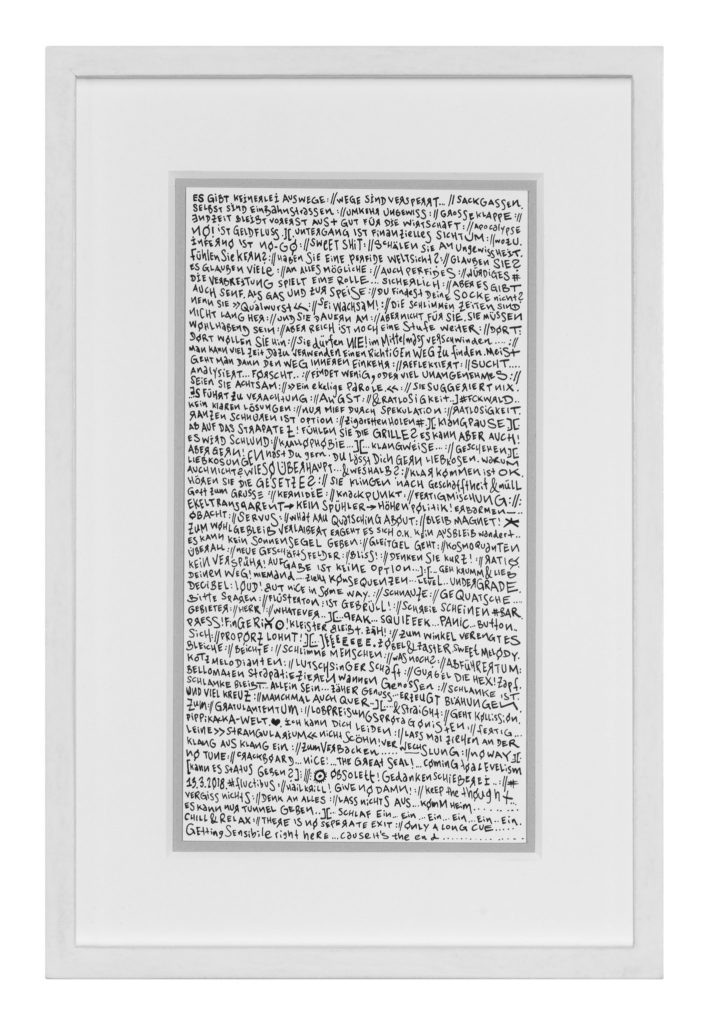 ES GIBT KEINERLEI AUSWEGE://WEGE SIND VERSPERRT...//SACKGASSEN.
SELBST SIND EINBAHNSTRASSEN://UMKEHR UNGEWISS://GROSSE KLAPPE://
ANDZEIT BLEIBT VORERST AUS+GUT FÜR DIE WIRTSCHAFT://APOCALYPSE
NOI IST GELDFLUSS.][UNTERGANG IST FINANZIELLES SICHTUM://WOZU.
INFERNO IST NO-GO://SWEET SHIT://SCHÄLEN SIE AM UNGEWISSHEIT.
FÜHLEN SIE KERN?://HABEN SIE EINE PERFIDE WELTSICHT?://GLAUBEN SIE?
ES GLAUBEN VIELE://AN ALLES MÖGLICHE://AUCH PERFIDES://WÜRDIGES#
DIE VERBREITUNG SPIELT EINE ROLLE...SICHERLICH://ABER ES GIBT
AUCH SENF. ALS GAS UND ZUR SPEISE://DU FINDEST DEINE SOCKE NICHT?
NENN SIE >>QUALWURST<<.//SEI WACHSAM!://DIE SCHLIMMEN ZEITEN SIND
NICHT LANG HER://UND SIE DAUERN AN://ABER NICHT FÜR SIE. SIE MÜSSEN
WOHLHABEND SEIN://ABER REICH IST NOCH EINE STUFE WEITER://DORT.
DORT WOLLEN SIE HIN://SIE DÜRFEN NIE! IM MITTELMASS VERSCHWINDEN....://
MAN KANN VIEL ZEIT DAZU VERWENDEN EINEN RICHTIGEN WEG ZU FINDEN. MEIST
GEHT MAN DANN DEN WEG INNEREN EINKEHR://REFLEKTIERT://SUCHT....
ANALYSIERT...FORSCHT..://FINDET WENIG, ODER VIEL UNANGENEHMES://
SEIEN SIE ACHTSAM://>>EIN EKELIGE PAROLE.<<.//SIE SUGGERIERT NIX.
ES FÜHRT ZU VERACHTUNG://ANGST://&RATLOSIGKEIT..]#FCKWALD..
KEIN KLAREN LÖSUNGEN://NUR MIEF DURCH SPEKULATION://RATLOSIGKEIT.
RANZEN SCHNÜREN IST OPTION://ZIGARETTEN HOLEN#][KLANGPAUSE][
AB AUF DAS STRAPATEZ! FÜHLEN SIE DIE GRILLE? ES KANN ABER AUCH!
ES WIRD SCHLUND://KANOPHOBIE...][...KLANGWEISE...://GESCHEHEN][
LIEBKOSUNG DU LÄSST DICH GERN LIEBKOSEN. WARUM
AUCH NICHT? WIESO ÜBERHAUPT...&WESHALB?://KLAR KOMMEN IST OK.
HÖREN SIE DIE GESETZE?://SIE KLINGEN NACH GESCHÄFTHEIT & MÜLL
GOTT ZUM GRUSSE://KERNIDEE://KNACKPUNKT.//FERTIGMISCHUNG://:
EKELTRANSPARENT→KEIN SPÜHLER→HÖHENPOLITIK! ERBARMEN—
OBACHT://SERVUS://WHAT ARU QUATSCHING ABOUT://BLEIB MAGNET!
ZUM WOHLGEBLEIB VERLAIBERT ERGEHT ES SICH O.K. KEIN AUSBLEIB WANDERT..
ES KANN KEIN SONNENSEGEL GEBEN://GLEITGEL GEHT://KOSMONAUTEN
ÜBERALL://NEUE GESCHÄFTSFELDER://BLISS!://DENKEN SIE KURZ!://RATIO.
KEIN VERSPÜHR! AUFGABE IST KEINE OPTION...][...GEH KRUMM & LIEB
DEINEN WEG! NIEMAND...ZIEHT KONSEQUENZEN...LEVEL...UNDERGRADE.
DECIBEL: LOUD! BUT NICE IN SOME WAY.://SCHNAUZE://GEQUATSCHE....
BITTE SPAREN://FLÜSTERTON: IST GEBRÜLL!://SCHREIE SCHEINEN #BAR.
GEBIETER://HERR://WHATEVER...][...PEAK...SQUIEEEK...PANIC...BUTTON.
PRESS! FINGER KLEISTER BLEIBT. ZÄH!://ZUM WINKEL VERENGT ES
SICH://PROPORZ LOHNT! SWEET MELODY.
BLEICHE://BEICHTE://SCHLIMME MENSCHEN://WAS NOCH?://ABFÜHRERTUM:
KOTZMELODIANTEN://LUTSCHSINGER SCHAFT://GURGEL DIE HEX! ZAPF.
WANNEN GENOSSEN://SCHLANKE IST
SCHLANKE BLEIBT...ALLEIN SEIN...ZÄHER GENUSS...ERZEUGT BLÄHUNGEN
UND VIEL KREUZ://MANCHMAL AUCH QUER-][...&STRAIGHT://GEHT KOLLISION.
ZUM://GRATULANTENTUM://LOBPREISUNGSPROTAGONISTEN://FERTIG...
PIPPIKAKKA-WELT.♥ ICH KANN DICH LEIDEN://LASS MAL ZIEHEN AN DER
LEINE>>STRANGULARIUM<<NICHT SCHÖN! VERWECHSLUNG://NO WAY][
KLANG AUS KLANG EIN://ZUM VERBACKEN.....
NO TUNE://CRACKBOARD...NICE!...THE GREAT SEAL!...COMING TO A LEVELISM
[KANN ES STATUS GEBEN?]://: OBSOLETT! GEDANKENSCHIEBEREI..://#
19.3.2018.#FLUCTIBUS://HAILKRILL! GIVE NO DAMN!://KEEP THE THOUGHT
VERGISS NICHTS://DENK AN ALLES://LASS NICHTS AUS...KOMM HEIM......
ES KANN NUR TUNNEL GEBEN..][...SCHLAF EIN...EIN...EIN...EIN...EIN...EIN.
CHILL & RELAX://THERE IS NO SEPERATE EXIT://ONLY A LONG CUE.....
GETTING SENSIBILE RIGHT HERE...CAUSE IT'S THE END..............